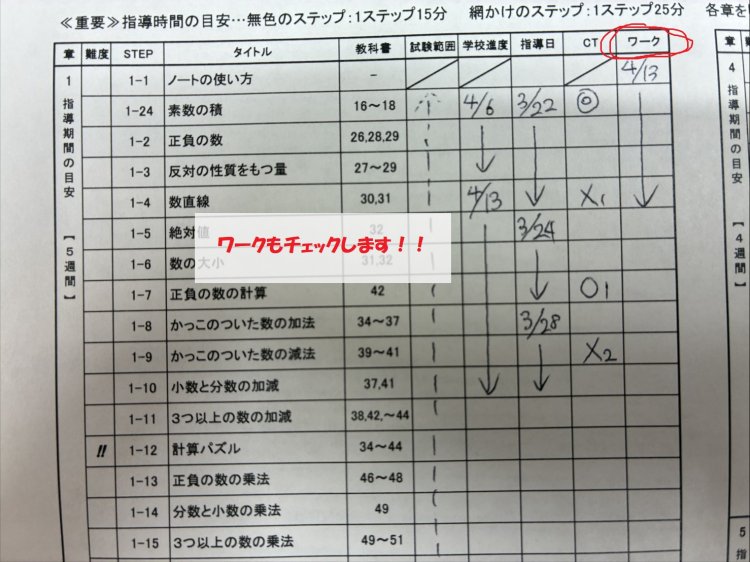 ≪重要≫指導時間の目安…無色のステップ：1ステップ15分　網かけのステップ：1ステップ25分　各章を
章 難度 STEP タイトル 教科書 試験範囲 学校進度 指導日 CT ワーク 章
1 1-1 ノートの使い方 － 4/13 4
指導期間の目安 【5週間】
1-24 素数の積 16～18 4/6 3/22 ◎
1-2 正負の数 26,28,29
1-3 反対の性質をもつ量 27～29
1-4 数直線 30,31 4/13 X1
1-5 絶対値 32 3/24
ワークもチェックします！！
1-6 数の大小 31,32
1-7 正負の数の計算 42 O1
1-8 かっこのついた数の加法 34～37 3/28
1-9 かっこのついた数の減法 39～41 X2
1-10 小数と分数の加減 37,41
1-11 3つ以上の数の加減 38,42,～44
!! 1-12 計算パズル 34～44
1-13 正負の数の乗法 46～48
1-14 分数と小数の乗法 49
1-15 3つ以上の数の乗法 49～51
指導期間の目安 【4週間】
5
指